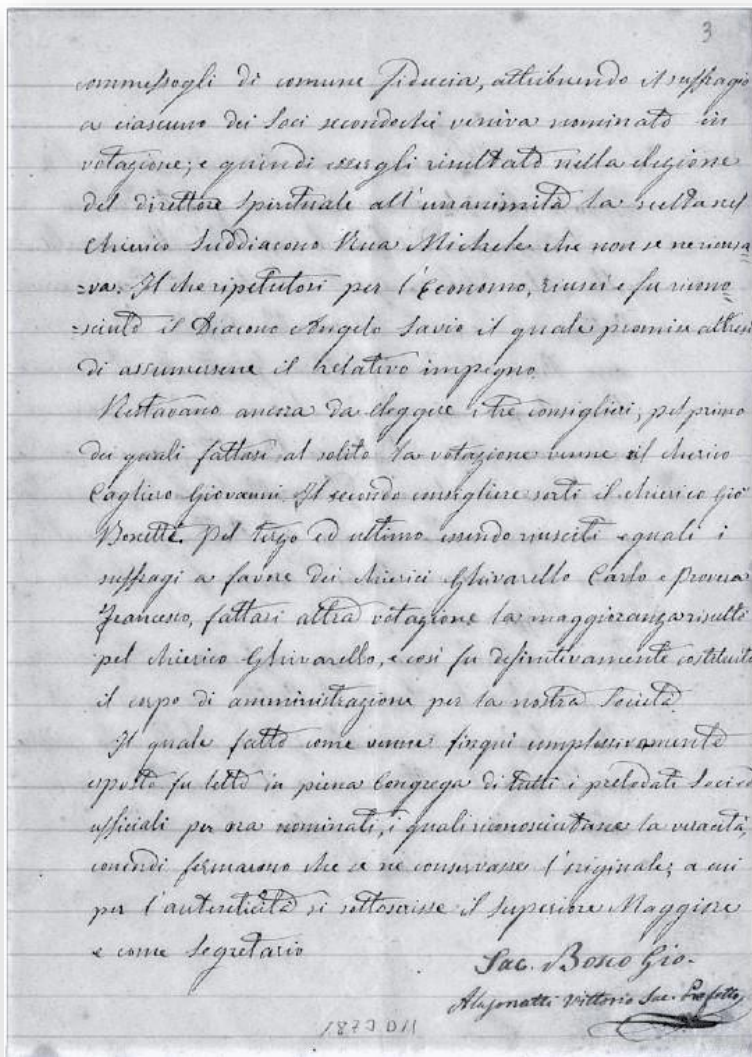 3
commessogli di comune fiducia, attribuendo il suffragio
a ciascuno dei Soci secondochè veniva nominato in
votazione; e quindi essergli risultato nella elezione
del direttore Spirituale all'unanimità la scelta nel
chierico Suddiacono Rua Michele che non se ne ricusa=
=va. Il che ripetutosi per l'Economo, riuscì e fu ricono=
=sciuto il Diacono Angelo Savio il quale promise altresì
di assumersene il relativo impegno.
Restavano ancora da eleggere i tre consiglieri, pel primo
dei quali fattasi al solito la votazione venne il chierico
Cagliero Giovanni. Il secondo consigliere sortì il chierico Gio
Bonetti. Pel terzo ed ultimo essendo riusciti eguali i
suffragi a favore dei chierici Ghivarello Carlo e Provera
Francesco, fattasi altra votazione la maggioranza risultò
pel chierico Ghivarello, e così fu definitivamente costituito
il corpo di amministrazione per la nostra Società.
Il quale fatto come venne finqui complessivamente
esposto fu letto in piena Congrega di tutti i prelodati Soci ed
ufficiali per ora nominati, i quali riconosciutane la veracità,
concordi fermarono che se ne conservasse l'originale; a cui
per l'autenticità si sottoscrisse il Superiore Maggiore
e come Segretario
Sac. Bosco Gio.
Alasonatti Vittorio Sac. Prefetto
1873 D11